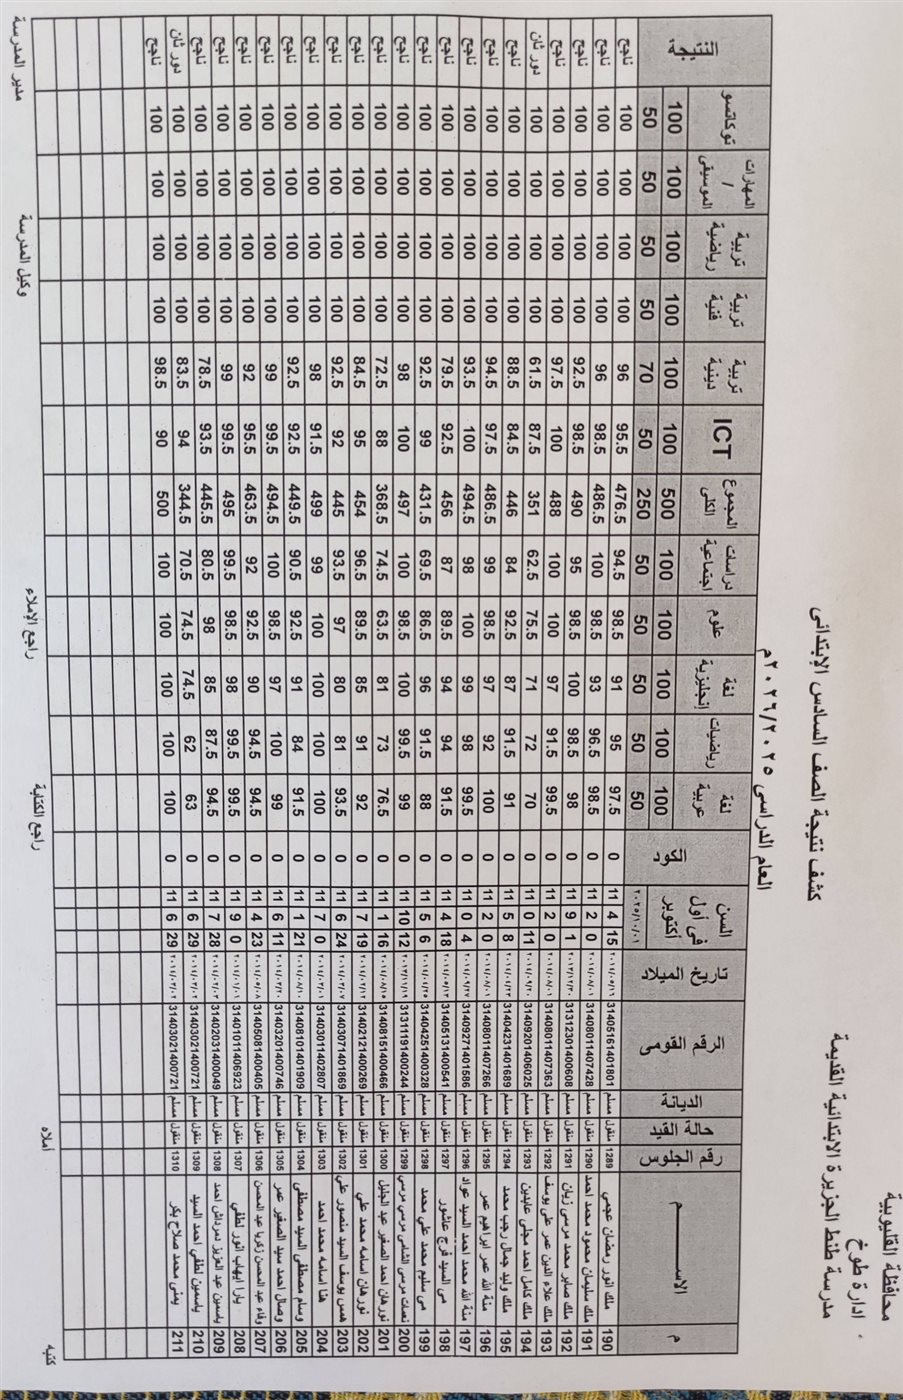 محافظة القليوبية
ادارة طوخ
مدرسة طنط الجزيرة الابتدائية القديمة
كشف نتيجة الصف السادس الإبتدائى
العام الدراسى ٢٠٢٦/٢٠٢٥م
م الاســـــم رقم الجلوس حالة القيد الديانة الرقم القومى تاريخ الميلاد السن فى أول أكتوبر الكود لغة عربية رياضيات لغة إنجليزية علوم دراسات اجتماعية المجموع الكلى ICT تربية دينية تربية فنية تربية رياضية المهارات / الموسيقى توكاتسو النتيجة
٢٠٢٥/١٠/٠١ 100 100 100 100 100 500 100 100 100 100 100 100
50 50 50 50 50 250 50 70 50 50 50 50
190 ملك انور رمضان عجمي 1289 منقول مسلم 31405161401801 15 4 11 0 97.5 95 91 98.5 94.5 476.5 95.5 96 100 100 100 100 ناجح
191 ملك سليمان محمود محمد احمد 1290 منقول مسلم 31408011407428 0 2 11 0 98.5 96.5 93 98.5 100 486.5 98.5 96 100 100 100 100 ناجح
192 ملك صابر محمد مرسى زيان 1291 منقول مسلم 31312301400608 1 9 11 0 98 98.5 100 98.5 95 490 98.5 92.5 100 100 100 100 ناجح
193 ملك علاء الدين عمر على يوسف 1292 منقول مسلم 31408011407363 0 2 11 0 99.5 91.5 97 100 100 488 100 97.5 100 100 100 100 ناجح
194 ملك كامل احمد مجلى عابدين 1293 منقول مسلم 31409201406025 11 0 11 0 70 72 71 75.5 62.5 351 87.5 61.5 100 100 100 100 دور ثان
195 ملك وليد جمال رجب محمد 1294 منقول مسلم 31404231401689 8 5 11 0 91 91.5 87 92.5 84 446 84.5 88.5 100 100 100 100 ناجح
196 منة الله عمر ابراهيم عمر 1295 منقول مسلم 31408011407266 0 2 11 0 100 92 97 98.5 99 486.5 97.5 94.5 100 100 100 100 ناجح
197 منة الله محمد احمد السيد عواد 1296 منقول مسلم 31409271401586 4 0 11 0 99.5 98 99 100 98 494.5 100 93.5 100 100 100 100 ناجح
198 منى السيد فرج عاشور 1297 منقول مسلم 31405131400541 18 4 11 0 91.5 94 94 89.5 87 456 92.5 79.5 100 100 100 100 ناجح
199 مى سليم محمد على محمد 1298 منقول مسلم 31404251400328 6 5 11 0 88 91.5 96 86.5 69.5 431.5 99 92.5 100 100 100 100 ناجح
200 نعمات مرسى الشامى مرسى مرسى 1299 منقول مسلم 31311191400244 12 10 11 0 99 99.5 100 98.5 100 497 100 98 100 100 100 100 ناجح
201 نورهان احمد الصغير عبد الجليل 1300 منقول مسلم 31408151400466 16 1 11 0 76.5 73 81 63.5 74.5 368.5 88 72.5 100 100 100 100 ناجح
202 نورهان اسامه محمد على 1301 منقول مسلم 31402121400269 19 7 11 0 92 91 85 89.5 96.5 454 95 84.5 100 100 100 100 ناجح
203 همس يوسف السيد منصور على 1302 منقول مسلم 31403071401869 24 6 11 0 93.5 81 80 97 93.5 445 92 92.5 100 100 100 100 ناجح
204 هنا اسامه محمد احمد 1303 منقول مسلم 31403011402807 0 7 11 0 100 100 100 100 99 499 91.5 98 100 100 100 100 ناجح
205 وسام مصطفى السيد مصطفى 1304 منقول مسلم 31408101401909 21 1 11 0 91.5 84 91 92.5 90.5 449.5 92.5 92.5 100 100 100 100 ناجح
206 وصال احمد سيد الصغير عمر 1305 منقول مسلم 31403201400746 11 6 11 0 99 100 97 98.5 100 494.5 99.5 99 100 100 100 100 ناجح
207 وفاء عبد المحسن زكريا عبد المحسن 1306 منقول مسلم 31405081400405 23 4 11 0 94.5 94.5 90 92.5 92 463.5 95.5 92 100 100 100 100 ناجح
208 يارا ايهاب انور لطفي 1307 منقول مسلم 31401011406923 0 9 11 0 99.5 99.5 98 98.5 99.5 495 99.5 99 100 100 100 100 ناجح
209 ياسمين عبد العزيز دمرداش احمد 1308 منقول مسلم 31402031400049 28 7 11 0 94.5 87.5 85 98 80.5 445.5 93.5 78.5 100 100 100 100 ناجح
210 ياسمين لطفي احمد السيد 1309 منقول مسلم 31403021400721 29 6 11 0 63 62 74.5 74.5 70.5 344.5 94 83.5 100 100 100 100 دور ثان
211 يمنى محمد صلاح بكر 1310 منقول مسلم 31403021400721 29 6 11 0 100 100 100 100 100 500 90 98.5 100 100 100 100 ناجح
كتبه أملاه راجع الكتابة راجع الإملاء وكيل المدرسة مدير المدرسة